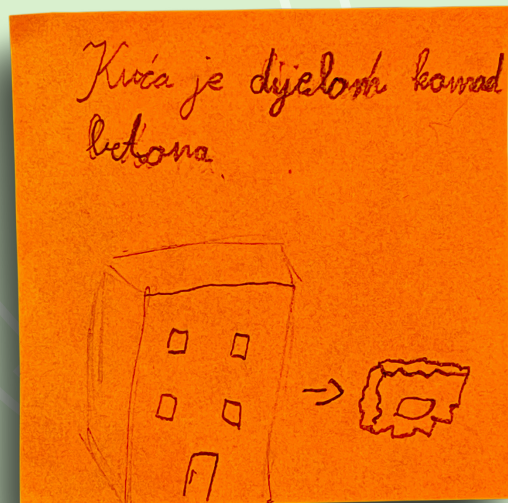 Kuća je dijelom komad
betona